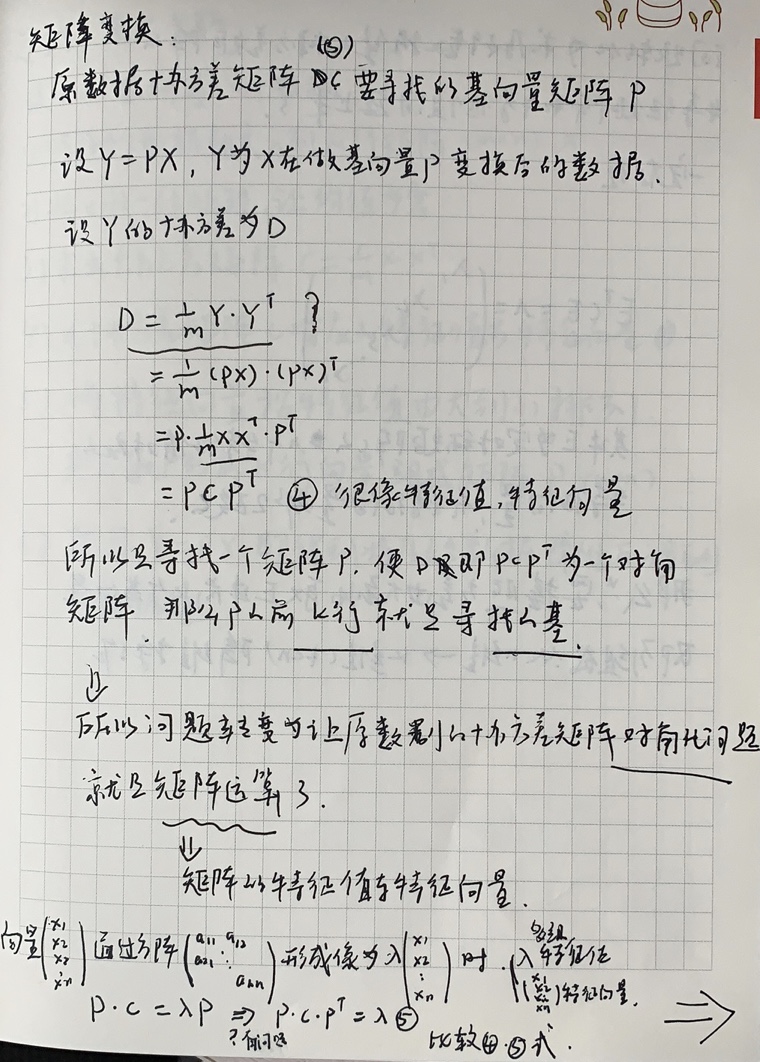 矩阵变换：
(⑤)
原数据协方差矩阵 C 要寻找的基向量矩阵 P
设 Y = PX, Y为X在做基向量P 变换后的数据.
设Y的协方差为D
D = 1/m Y·Y^T ?
= 1/m (PX)·(PX)^T
= P·1/m XX^T·P^T
= P C P^T ④ 很像特征值,特征向量
所以是寻找一个矩阵 P, 使 D 即 PCP^T 为一个对角
矩阵. 那么P的前 k行 就是寻找的基.
⇓
所以问题转变为让原数据的协方差矩阵对角化问题
就是矩阵运算了.
⇓
矩阵的特征值与特征向量.
向量(x1 x2 x3 ⋮ xn) 通过方阵(a11 a12 a21 ⋱ ann) 形成像为 λ(x1 x2 ⋮ xn) 时. λ 特征值
(x1 x2 ⋮ xn)特征向量.
P·C = λP ⇒ P·C·P^T = λ ⑤
?有问题
比较④·⑤式.
⇒